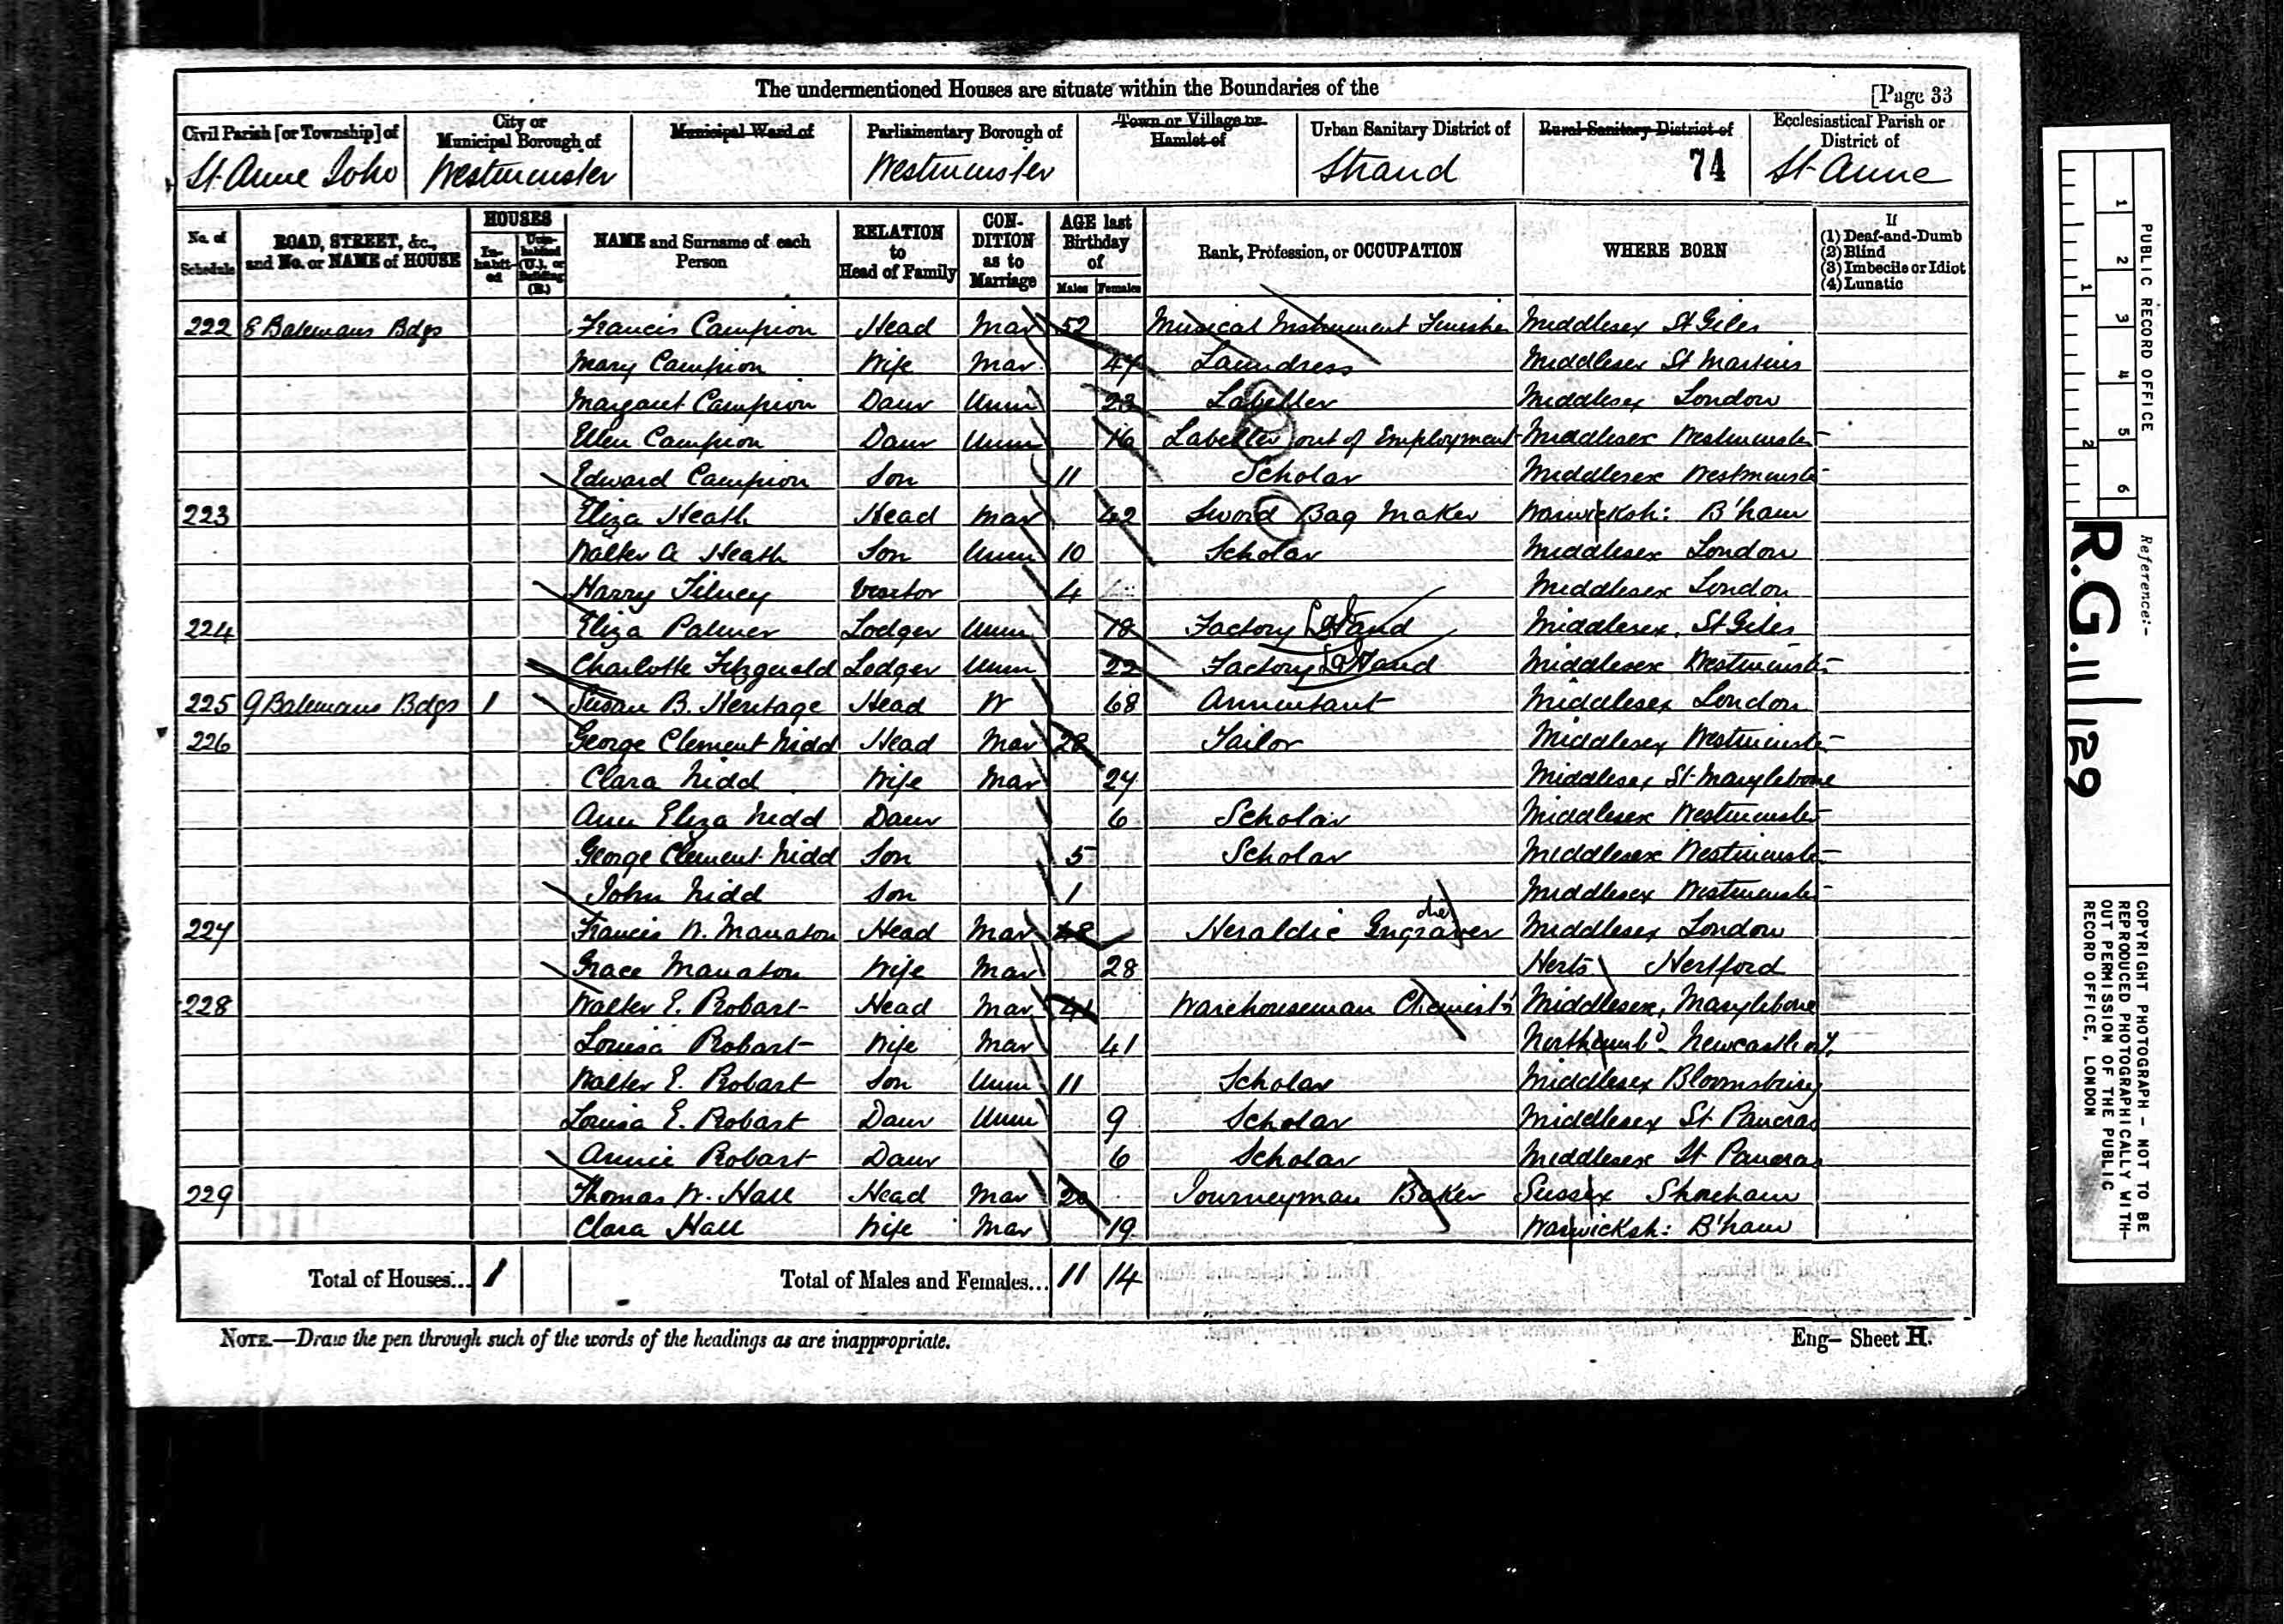 The undermentioned Houses are situate within the Boundaries of the
[Page 33
Civil Parish [or Township] of St. Anne Soho
City or Municipal Borough of Westminster
Municipal Ward of
Parliamentary Borough of Westminster
Town or Village or Hamlet of
Urban Sanitary District of Strand
Rural Sanitary District of
74
Ecclesiastical Parish or District of St. Anne
No. of Schedule
ROAD, STREET, &c., and No. or NAME of HOUSE
HOUSES
In-habit-ed
Unin-habited (U.), or Building (B.)
NAME and Surname of each Person
RELATION to Head of Family
CON-DITION as to Marriage
AGE last Birthday of
Males Females
Rank, Profession, or OCCUPATION
WHERE BORN
If
(1) Deaf-and-Dumb
(2) Blind
(3) Imbecile or Idiot
(4) Lunatic
222 8 Batemans Bdgs Francis Campion Head Mar 52 Musical Instrument Finisher Middlesex St Giles
Mary Campion Wife Mar 47 Laundress Middlesex St Martins
Margaret Campion Daur Unm 23 Labeller Middlesex London
Ellen Campion Daur Unm 16 Labeller out of Employment Middlesex Westminster
Edward Campion Son 11 Scholar Middlesex Westminster
223 Eliza Heath Head Mar 42 Sword Bag Maker Warwicksh: B'ham
Walter A Heath Son Unm 10 Scholar Middlesex London
Harry Tilney Visitor 4 Middlesex London
224 Eliza Palmer Lodger Unm 18 Factory Hand Middlesex, St Giles
Charlotte Fitzgerald Lodger Unm 22 Factory Hand Middlesex Westminster
225 9 Batemans Bdgs 1 Susan B. Heritage Head W 68 Annuitant Middlesex London
226 George Clement Nidd Head Mar 28 Tailor Middlesex Westminster
Clara Nidd Wife Mar 27 Middlesex St Marylebone
Ann Eliza Nidd Daur 6 Scholar Middlesex Westminster
George Clement Nidd Son 5 Scholar Middlesex Westminster
John Nidd Son 1 Middlesex Westminster
227 Francis W. Manaton Head Mar 48 Heraldic die Engraver Middlesex London
Grace Manaton Wife Mar 28 Herts Hertford
228 Walter E. Robart Head Mar 41 Warehouseman Chemist's Middlesex, Marylebone
Louisa Robart Wife Mar 41 Northumbd. Newcastle
Walter E. Robart Son Unm 11 Scholar Middlesex Bloomsbury
Louisa E. Robart Daur Unm 9 Scholar Middlesex St Pancras
Annie Robart Daur 6 Scholar Middlesex St Pancras
229 Thomas W. Hall Head Mar Journeyman Baker Sussex Shoreham
Clara Hall Wife Mar 19 Warwicksh: B'ham
Total of Houses... 1 Total of Males and Females... 11 14
NOTE.—Draw the pen through such of the words of the headings as are inappropriate.
Eng– Sheet H.
PUBLIC RECORD OFFICE
1 2 3 4 5 6
1 2
Reference:-
R.G. 11/129
COPYRIGHT PHOTOGRAPH - NOT TO BE
REPRODUCED PHOTOGRAPHICALLY WITH-
OUT PERMISSION OF THE PUBLIC
RECORD OFFICE, LONDON